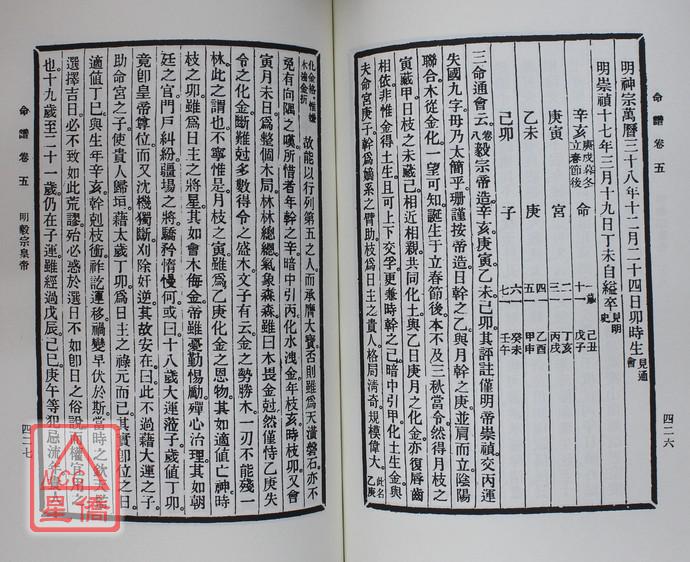 命譜 卷五
四二六
明神宗萬曆三十八年十二月二十四日卯時生 見通會
明崇禎十七年三月十九日丁未自縊卒 見明史
辛亥 庚戌森冬立春節後 命
庚寅 宮
乙未 庚
己卯 子
一 己丑
十一 戊子
二一 丁亥
三一 丙戌
四一 乙酉
五一 甲申
六一 癸未
七一 壬午
三命通會云 卷八 毅宗帝造。辛亥。庚寅。乙未。己卯。其評註僅明帝崇禎。交丙運
失國九字。毋乃太簡乎。珊謹按帝造。日幹之乙。與月幹之庚。並肩而立。陰陽
聯合。木從金化。一望可知。誕生于立春節後。本不及三秋當令。然得月枝之
寅藏甲。日枝之未藏己。相近相親。共同化土。與乙日庚月之化金。亦復唇齒
相依。非惟金得土生。且可上下交孚。更兼時幹之己。暗中引甲。化土生金。與
夫命宮庚子。幹爲嫡系之臂助。枝爲日主之貴人。格局清奇。規模偉大。此名乙庚
化金格。惟嫌木油金折 故能以行列第五之人。而承膺大寶。否則雖爲天潢磐石。亦不
免有向隅之嘆。所惜者。年幹之辛。暗中引丙。化水洩金。年枝亥。時枝卯。又會
寅月未日。爲整個木局。林林總總。氣象森森。雖曰木畏金尅。然僅恃乙庚失
令之化金。斷難尅多數得令之盛木。文子有云。金之勢勝木。一刃不能殘一
林。此之謂也。不寧惟是。月枝之寅。雖爲乙庚化金之恩物。其如適値亡神。時
枝之卯。雖爲日主之將星。其如會木侮金。帝雖憂勤惕勵。殫心治理。其如朝
廷之官。門戶糾紛。疆場之將。驕矜惰慢何。或曰。十八歲大運涖子。歲値丁卯。
竟卽皇帝尊位。而又沈機獨斷。刈除奸逆。其故安在。曰。此不過藉大運之子。
助命宮之子。使貴人歸垣。藉太歲丁卯。爲日主之祿元而已。其實卽位之日。
適値丁巳。與生年辛亥。幹剋枝衝。祚訖運移。禍變早伏於斯。當時之欽
選擇吉日。必不致如此荒謬。殆必惑於選日不如卽日之俗說。而權宜用之
也。十九歲至二十一歲。仍在子運。雖經過戊辰己巳庚午等犯忌流年
命譜 卷五 明毅宗皇帝
四二七
NCC
星僑